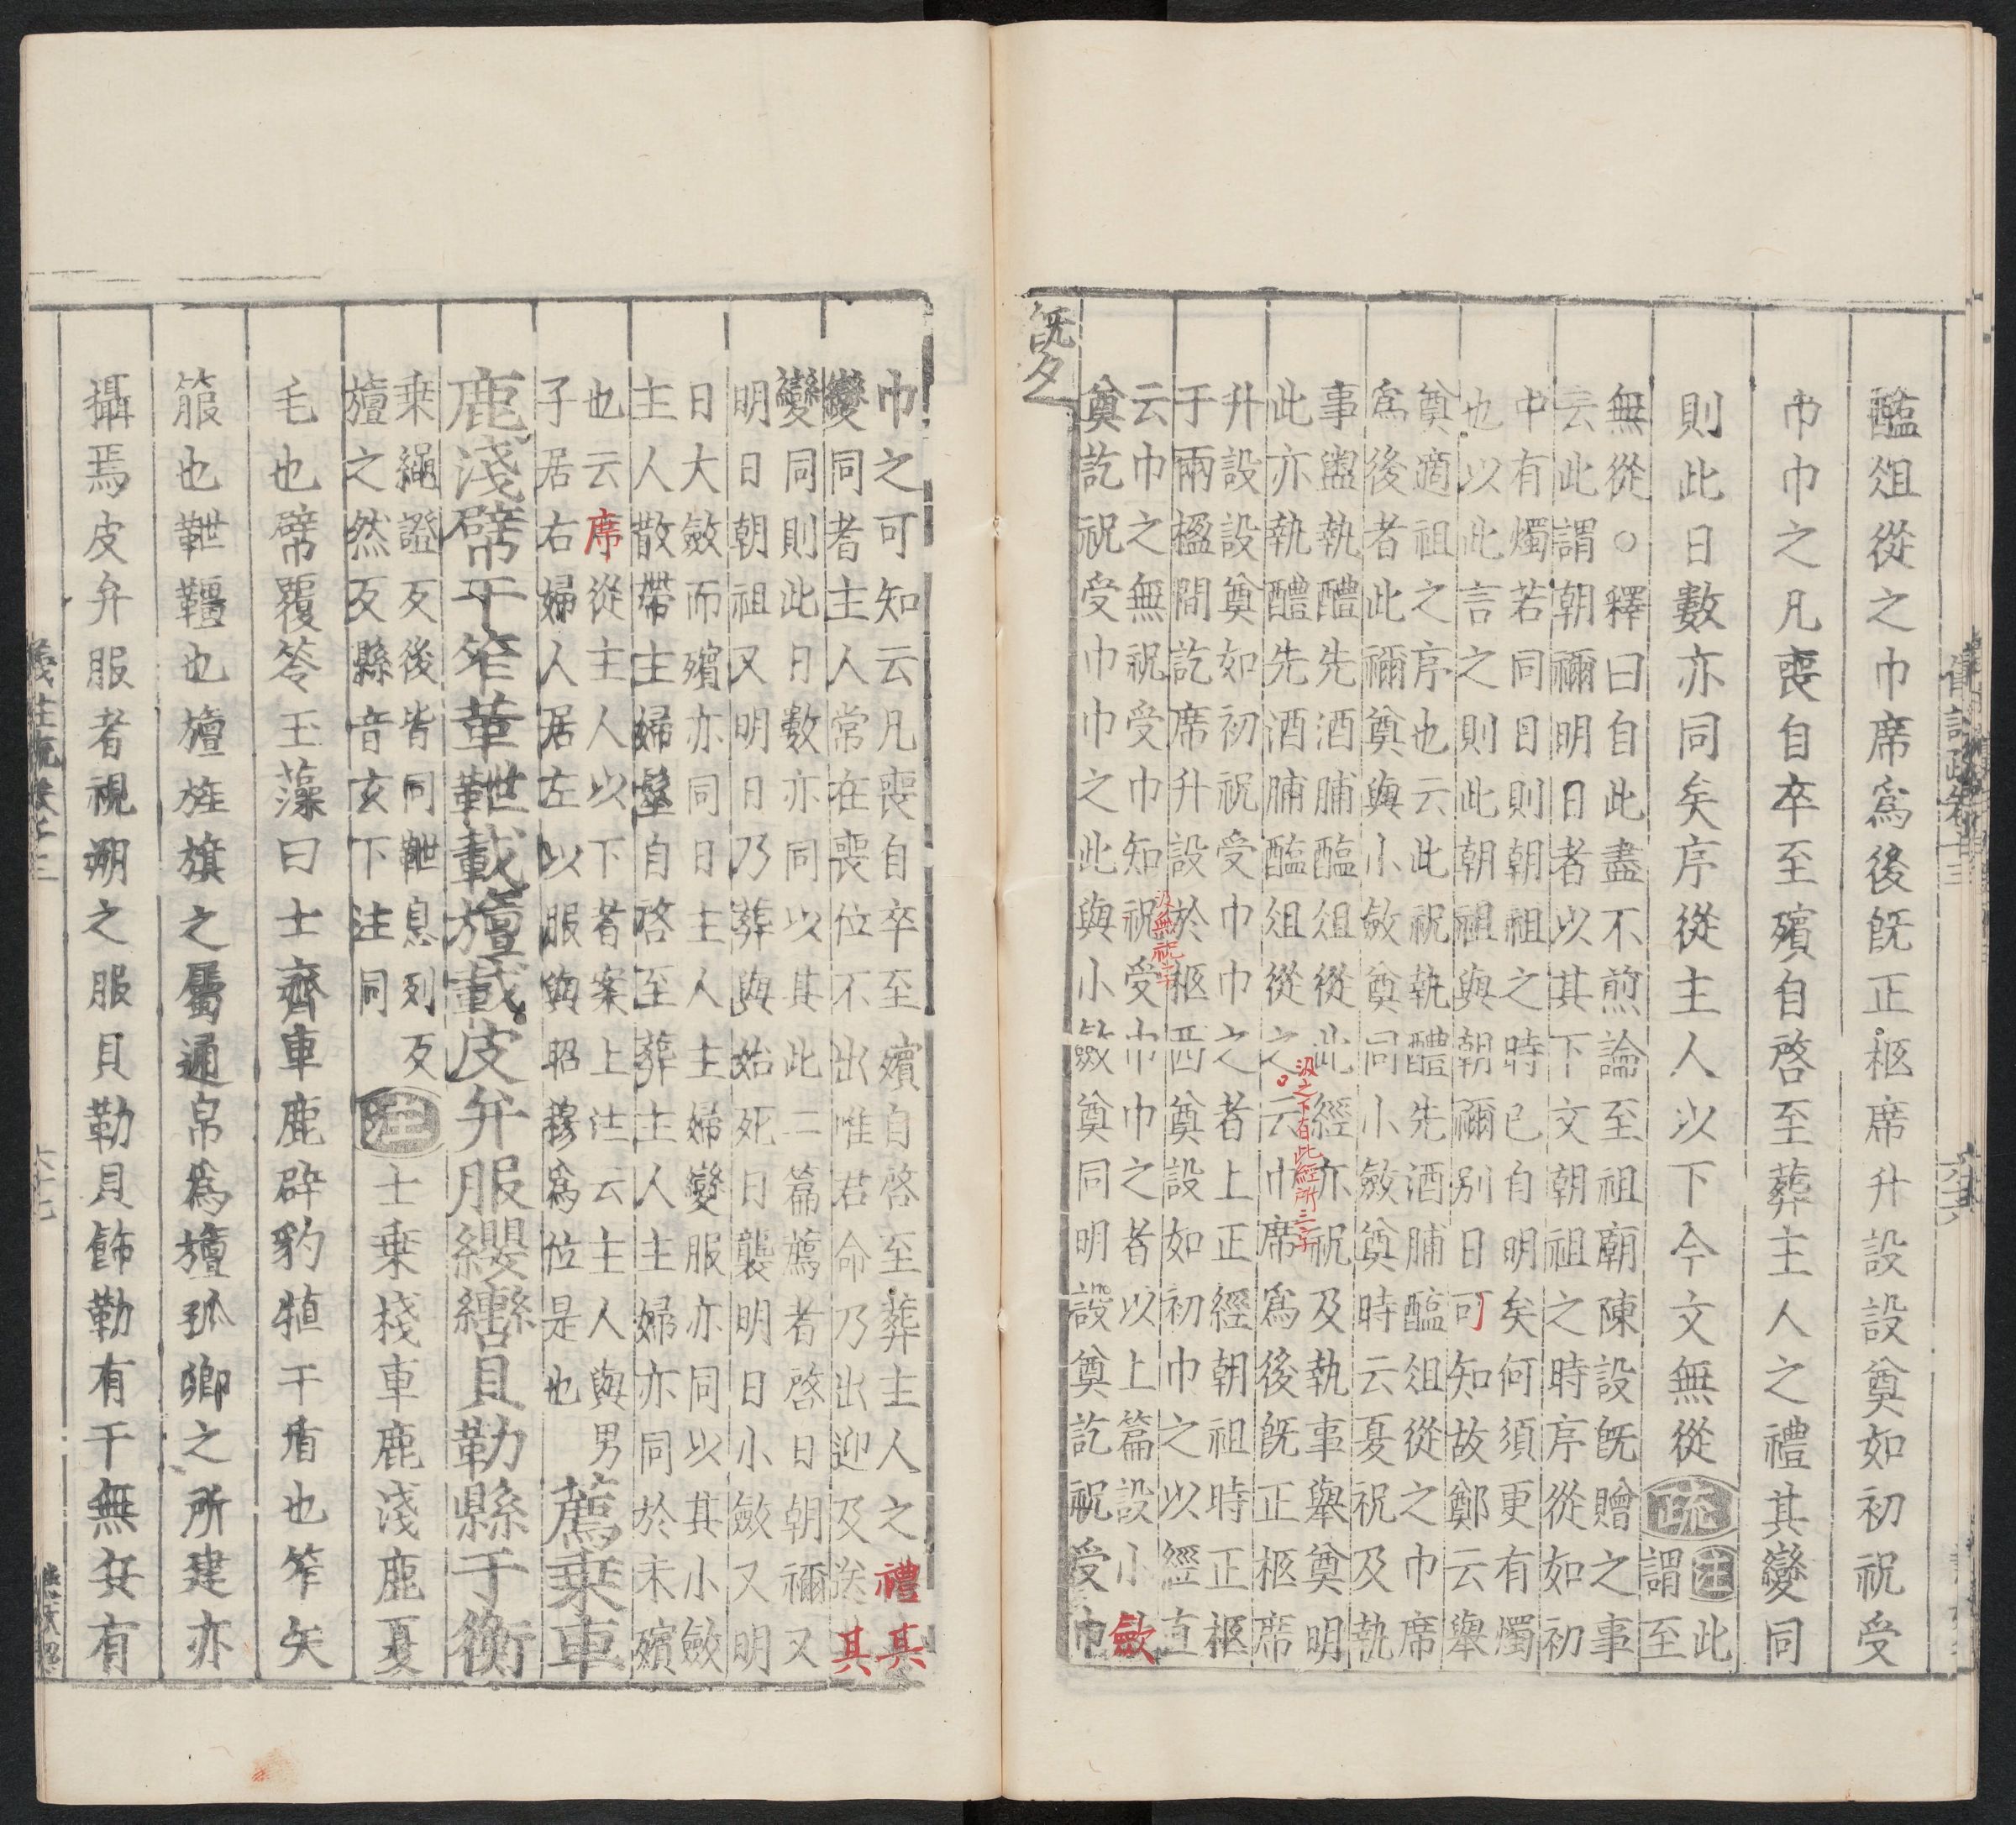 醢俎從之巾席爲後旣正柩席升設設奠如初祝受
巾巾之凡喪自卒至殯自啓至葬主人之禮其變同
則此日數亦同矣序從主人以下今文無從疏注此
謂至
無從○釋曰自此盡不煎論至祖廟陳設旣贈之事
云此謂朝禰明日者以其下文朝祖之時序從如初
中有燭若同日則朝祖之時已自明矣何須更有燭
也以此言之則此朝祖與朝禰別日可知故鄭云舉
奠適祖之序也云此祝執醴先酒脯醢俎從之巾席
爲後者此禰奠與小斂奠同小斂奠時云夏祝及執
事盥執醴先酒脯醢俎從此經亦祝及執事舉奠明
此亦執醴先酒脯醢俎從之云巾席爲後旣正柩席
汲之下有此經所三字
升設設奠如初祝受巾巾之者上正經朝祖時正柩
于兩楹間訖席升設於柩西奠設如初巾之以經直
汲無祝字
云巾之無祝受巾知祝受巾巾之者以上篇設小斂
奠訖祝受巾巾之此與小斂奠同明設奠訖祝受巾
旣夕
巾之可知云凡喪自卒至殯自啓至葬主人之禮其
變同者主人常在喪位不出唯君命乃出迎及送其
變同則此日數亦同以其此二篇薦者啓日朝禰又
明日朝祖又明日乃葬與始死日襲明日小斂又明
日大斂而殯亦同日主人主婦變服亦同以其小斂
主人散帶主婦髽自啓至葬主人主婦亦同於未殯
也云序從主人以下者案上注云主人與男
子居右婦人居左以服與昭穆爲位是也
薦乗車
鹿淺幦干笮革靾載旜載皮弁服纓轡貝勒縣于衡
乗繩證反後皆同靾息列反
旜之然反縣音玄下注同
注士乗棧車鹿淺鹿夏
毛也幦覆笭玉藻曰士齊車鹿辟豹犆干盾也笮矢
箙也靾韁也旜旌旗之屬通帛爲旜孤卿之所建亦
攝焉皮弁服者視朔之服貝勒貝飾勒有干無兵有